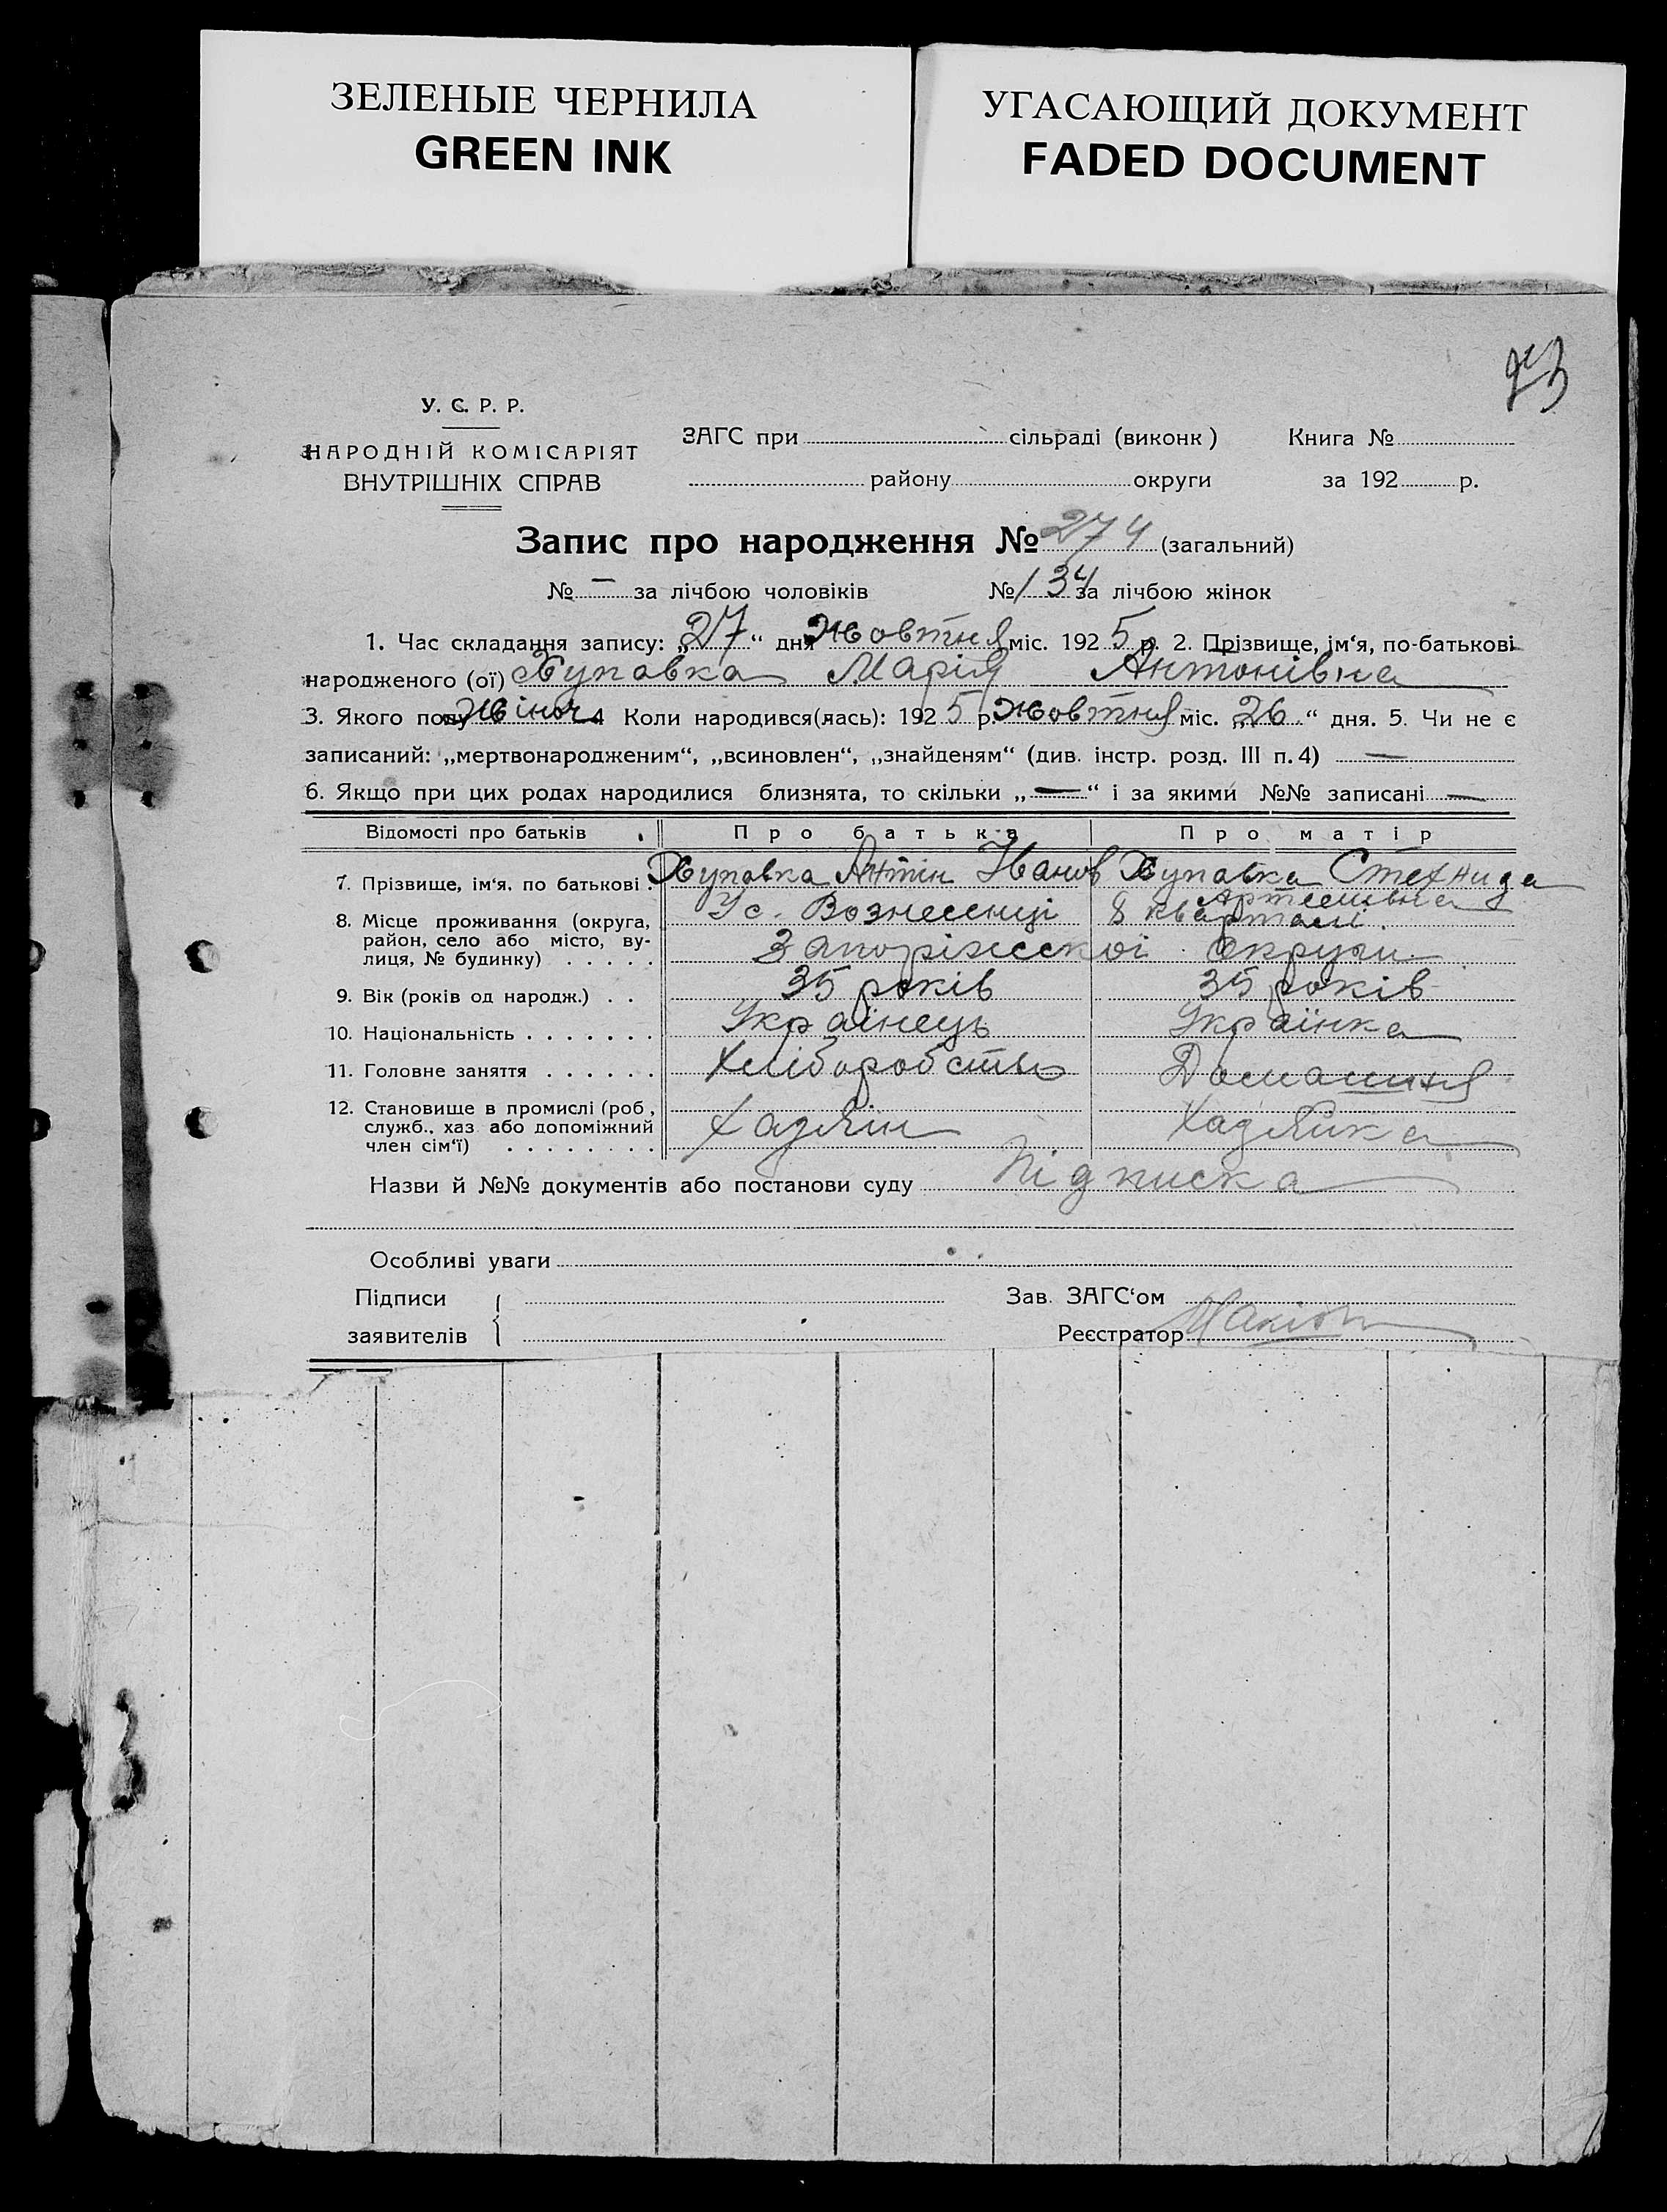 ЗЕЛЕНЫЕ ЧЕРНИЛА
GREEN INK
УГАСАЮЩИЙ ДОКУМЕНТ
FADED DOCUMENT
У. С. Р. Р.
НАРОДНІЙ КОМІСАРІЯТ
ВНУТРІШНІХ СПРАВ
ЗАГС при сільраді (виконк)
району округи
Книга №
за 192 р.
Запис про народження № 274 (загальний)
№ — за лічбою чоловіків № 134 за лічбою жінок
1. Час складання запису: „27“ дня Жовтня міс. 1925 р. 2. Прізвище, ім‘я, по-батькові
народженого (ої) Хупавка Марія Антонівна
3. Якого полу Жіноч. 4 Коли народився(лась): 1925 р. Жовтня міс. „26“ дня. 5. Чи не є
записаний: „мертвонародженим“, „всиновлен“, „знайденям“ (див. інстр. розд. III п. 4) —
6. Якщо при цих родах народилися близнята, то скільки „—“ і за якими №№ записані —
Відомості про батьків Про батька Про матір
7. Прізвище, ім‘я, по батькові. Хупавка Антін Іванов Хупавка Степнида
Артемівна
8. Місце проживання (округа, район, село або місто, вулиця, № будинку) . . . . . Ус. Вознесенці 8 кварталі
Запоріжської округи
9. Вік (років од народж.) . . 35 років 35 років
10. Національність . . . . . . . Українець Українка
11. Головне заняття . . . . . . Хліборобство Домашня
12. Становище в промислі (роб, служб., хаз або допоміжний член сім‘ї) . . . . . . . . . Хазяїн Хазяйка
Назви й №№ документів або постанови суду Підписка
Особливі уваги
Підписи
заявителів
Зав. ЗАГС‘ом
Реєстратор